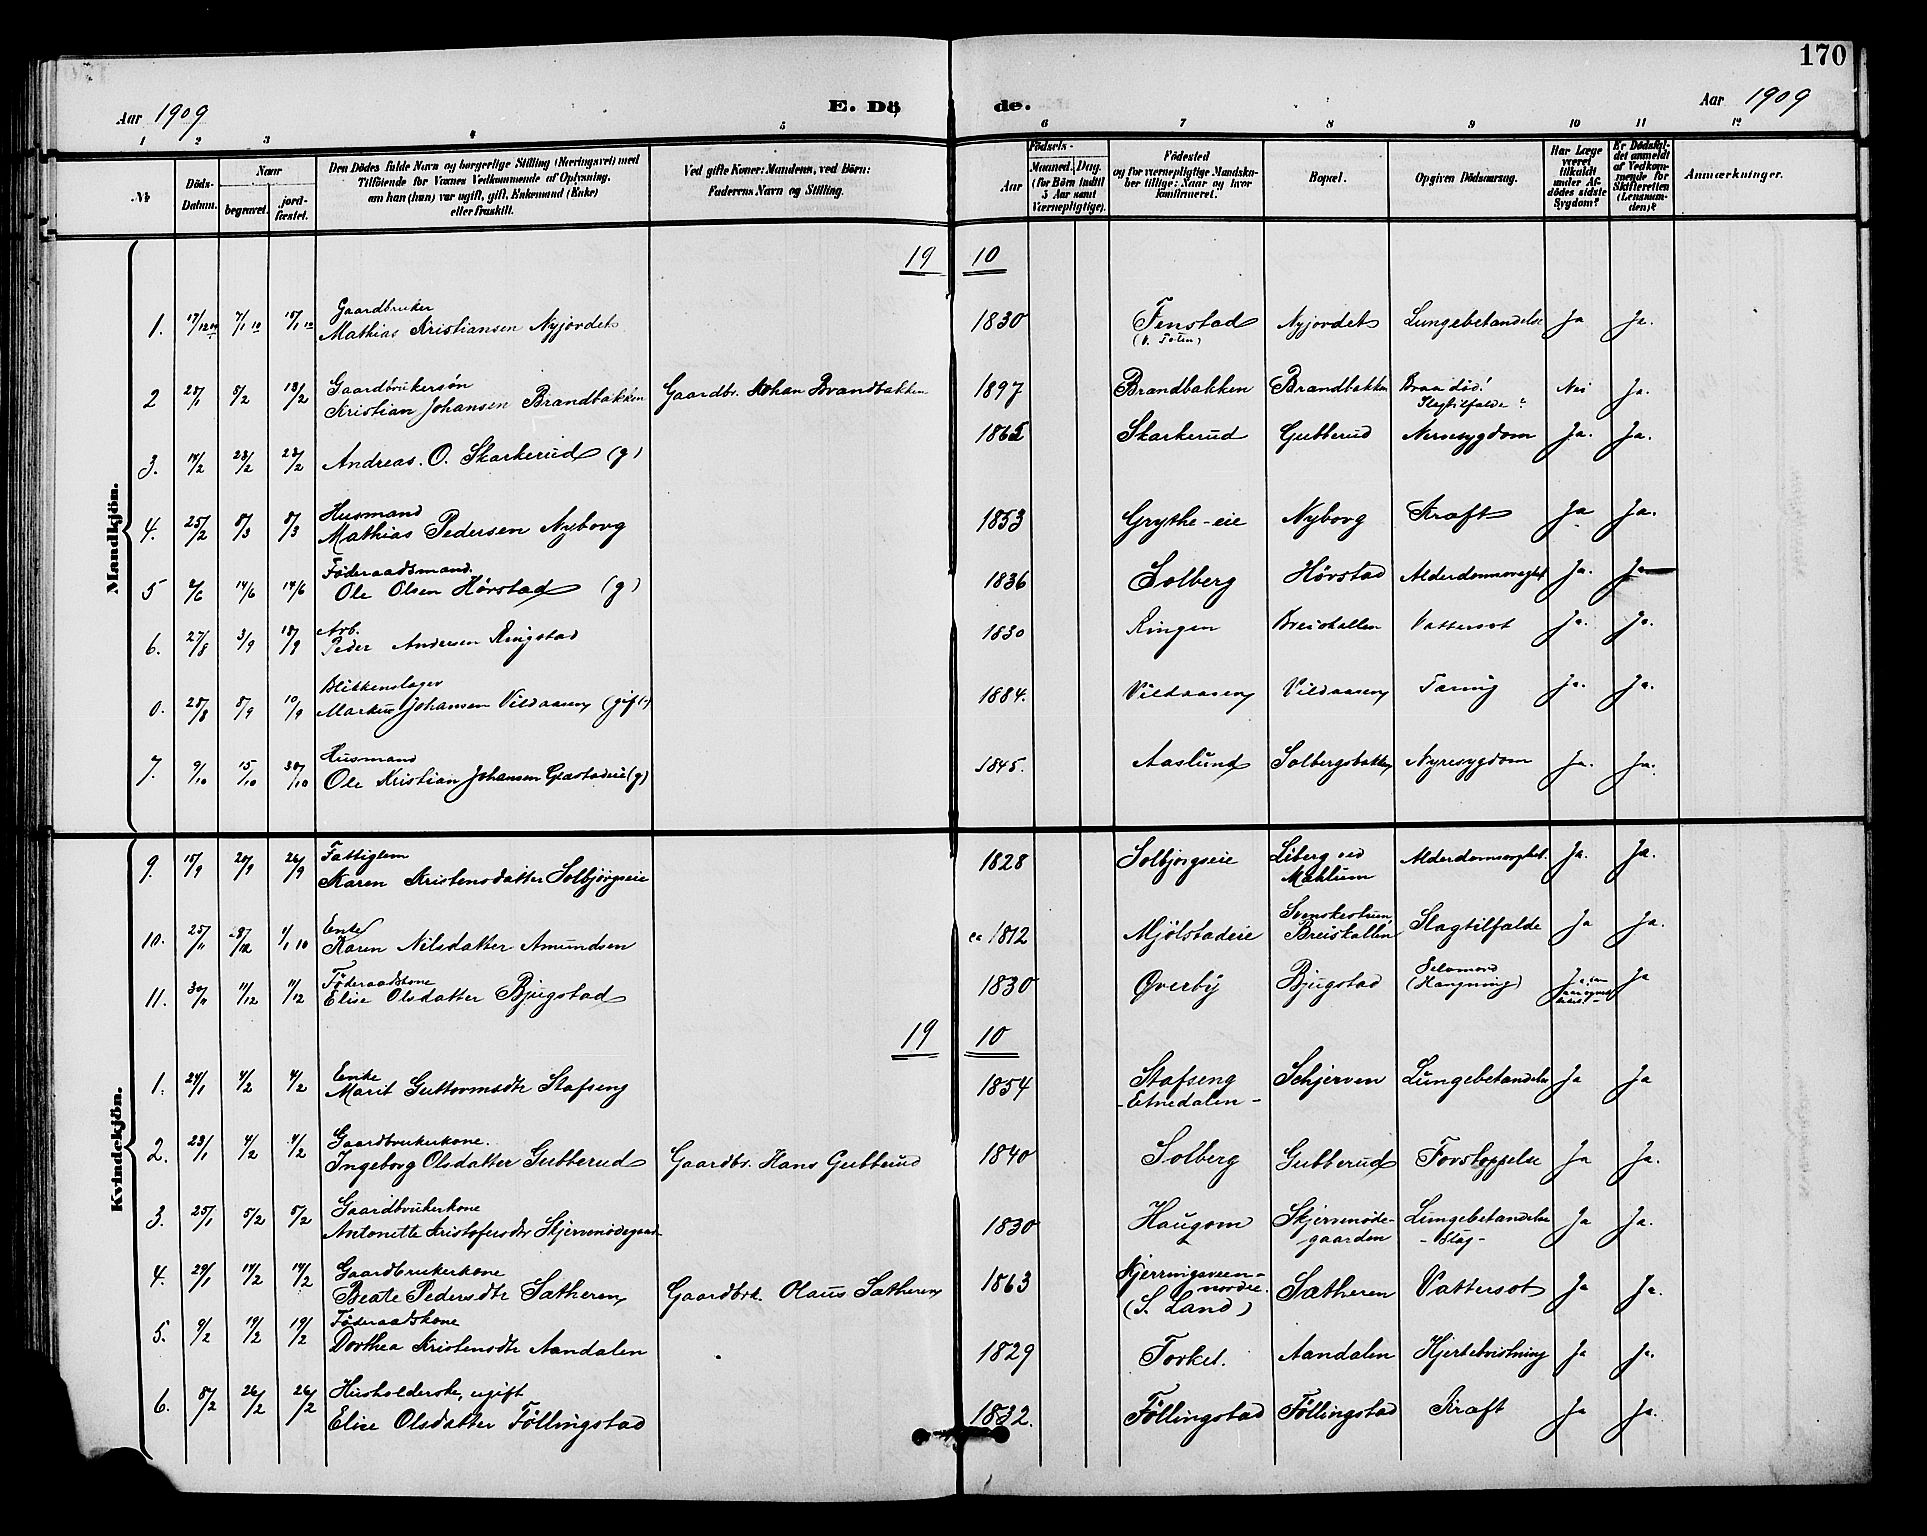 170
Aar 1909
E. Dö de.
Aar 1909
1 2 3 4 5 6 7 8 9 10 11 12
No
Döds-Datum.
Naar
begravet.
jord-fæstet.
Den Dödes fulde Navn og borgerlige Stilling (Næringsvei) med
Tilföiende for Voxnes Vedkommende af Oplysning,
om han (hun) var ugift, gift, Enkemand (Enke)
eller fraskilt.
Ved gifte Koner: Mandens, ved Börn:
Faderens Navn og Stilling.
Födsels-
Aar
Maaned. Dag.
(for Börn indtil
5 Aar samt
Værnepligtige).
Födested
og for værnepligtige Mandskaber tillige: Naar og hvor
konfirmeret.
Bopæl.
Opgiven Dödsaarsag.
Har Læge
været
tilkaldt
under Afdödes sidste
Sygdom?
Er Dödsfaldet anmeldt
af Vedkommende for
Skifteretten
(Lensmanden)?
Anmærkninger.
Mandkjön.
19 10
1. 17/12 09 7/1 10 15/1 10 Gaardbruker
Mathias Kristiansen Nyjordet 1830 Fenstad (V. Toten) Nyjordet Lungebetændelse Ja Ja.
2 25/1 5/2 13/2 Gaardbrukersøn
Kristian Johansen Brandbakken Gaardbr. Johan Brandbakken 1897 Brandbakken Brandbakken Braa død! Slagtilfælde? Nei Ja.
3. 14/2 23/2 23/2 Andreas. O. Skarkerud (g) 1865 Skarkerud Gubberud Nervesygdom Ja. Ja.
4. 25/2 8/3 8/3 Husmand
Mathias Pedersen Nyborg 1853 Grythe-eie Nyborg Kræft Ja Ja.
5 2/6 14/6 14/6 Føderaadsmand.
Ole Olsen Hørstad (g) 1836 Solberg Hørstad Alderdomssvaghet Ja. Ja
6. 27/8 3/9 18/9 Arb.
Peder Andersen Ringstad 1830 Ringen Breiskallen Vattersot Ja. Ja.
0. 28/8 5/9 10/9 Blikkenslager
Markus Johansen Vildaasen (gift) 1884. Vildaasen Vildaasen Tæring Ja. Ja.
7. 9/10 15/10 30/10 Husmand
Ole Kristian Johansen Glæstadeie (g) 1845. Aaslund Solbergsbakken Nyresygdom Ja. Ja.
Kvindekjön.
9. 15/9 20/9 26/9 Fattiglem
Karen Kristensdatter Solbjørgseie 1828 Solbjorgseie Liberg ved Mæhlum Alderdomssvaghet. Ja. Ja.
10. 25/11 8/12 1/1 10 Enke
Karen Nilsdatter Amundsen ca 1812 Mjølstadeie Svenskestuen, Breiskallen Slagtilfælde Ja Ja.
11. 30/11 11/12 11/12 Føderaadskone
Elise Olsdatter Bjugstad 1830 Øverby Bjugstad Selvmord (Hængning) Ja Ja
19 10
1. 24/1 4/2 4/2 Enke
Marit Guttormsdtr Stafseng 1854 Stafseng -Etnedalen- Schjerven Lungebetændelse Ja Ja
2. 23/1 4/2 4/2 Gaardbrukerkone.
Ingeborg Olsdatter Gubberud Gaardbr. Hans Gubberud 1840 Solberg Gubberud Forstoppelse Ja Ja.
3. 25/1 5/2 5/2 Gaardbrukerkone
Antonette Kristofersdtr Skjervenødegaard 1830 Haugom Skjervenøde-gaarden Lungebetændelse -Slag- Ja Ja.
4. 29/1 14/2 14/2 Gaardbrukerkone
Beate Pedersdtr Sætheren Gaardbrk. Olaus Sætheren 1863 Kjerringsveen nordre. (S. Land) Sætheren Vattersot Ja Ja.
5. 9/2 19/2 19/2 Føderaadskone
Dorthea Kristensdtr Aandalen 1829 Torket. Aandalen Hjertebristning Ja Ja.
6. 8/2 26/2 26/2 Husholderske, ugift
Elise Olsdatter Føllingstad 1832. Føllingstad Føllingstad Kræft Ja Ja.